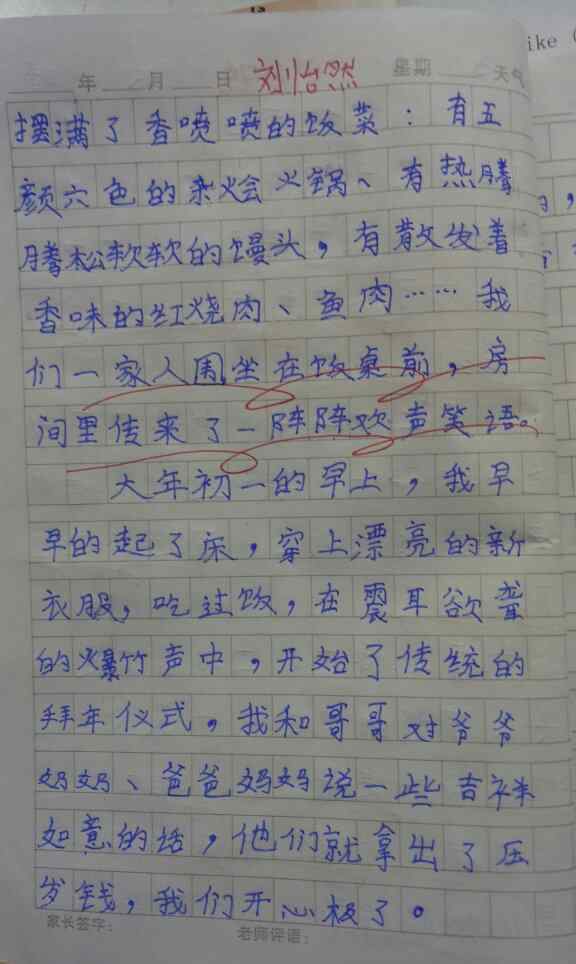 年 月 日 刘怡然 星期 天气
摆满了香喷喷的饭菜：有五
颜六色的杂烩火锅、有热腾
腾松软软的馒头，有散发着
香味的红烧肉、鱼肉……我
们一家人围坐在饭桌前，房
间里传来了一阵阵欢声笑语。
大年初一的早上，我早
早的起了床，穿上漂亮的新
衣服，吃过饭，在震耳欲聋
的爆竹声中，开始了传统的
拜年仪式，我和哥哥对爷爷
奶奶、爸爸妈妈说一些吉祥
如意的话，他们就拿出了压
岁钱，我们开心极了。
家长签字： 老师评语：
ike (